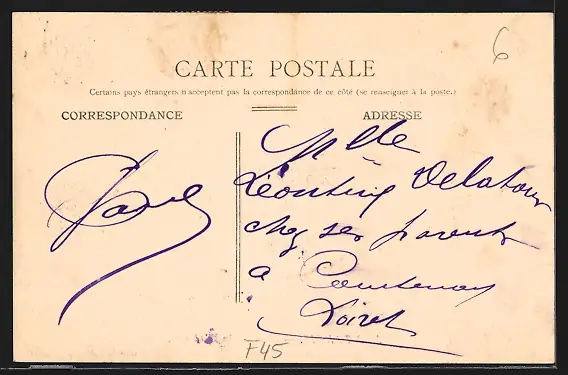 6
CARTE POSTALE
Certains pays étrangers n'acceptent pas la correspondance de ce côté (se renseigner à la poste.)
CORRESPONDANCE
ADRESSE
Mlle
Léontine Delatour
chez ses parents
a Courtenay
Loiret
F45